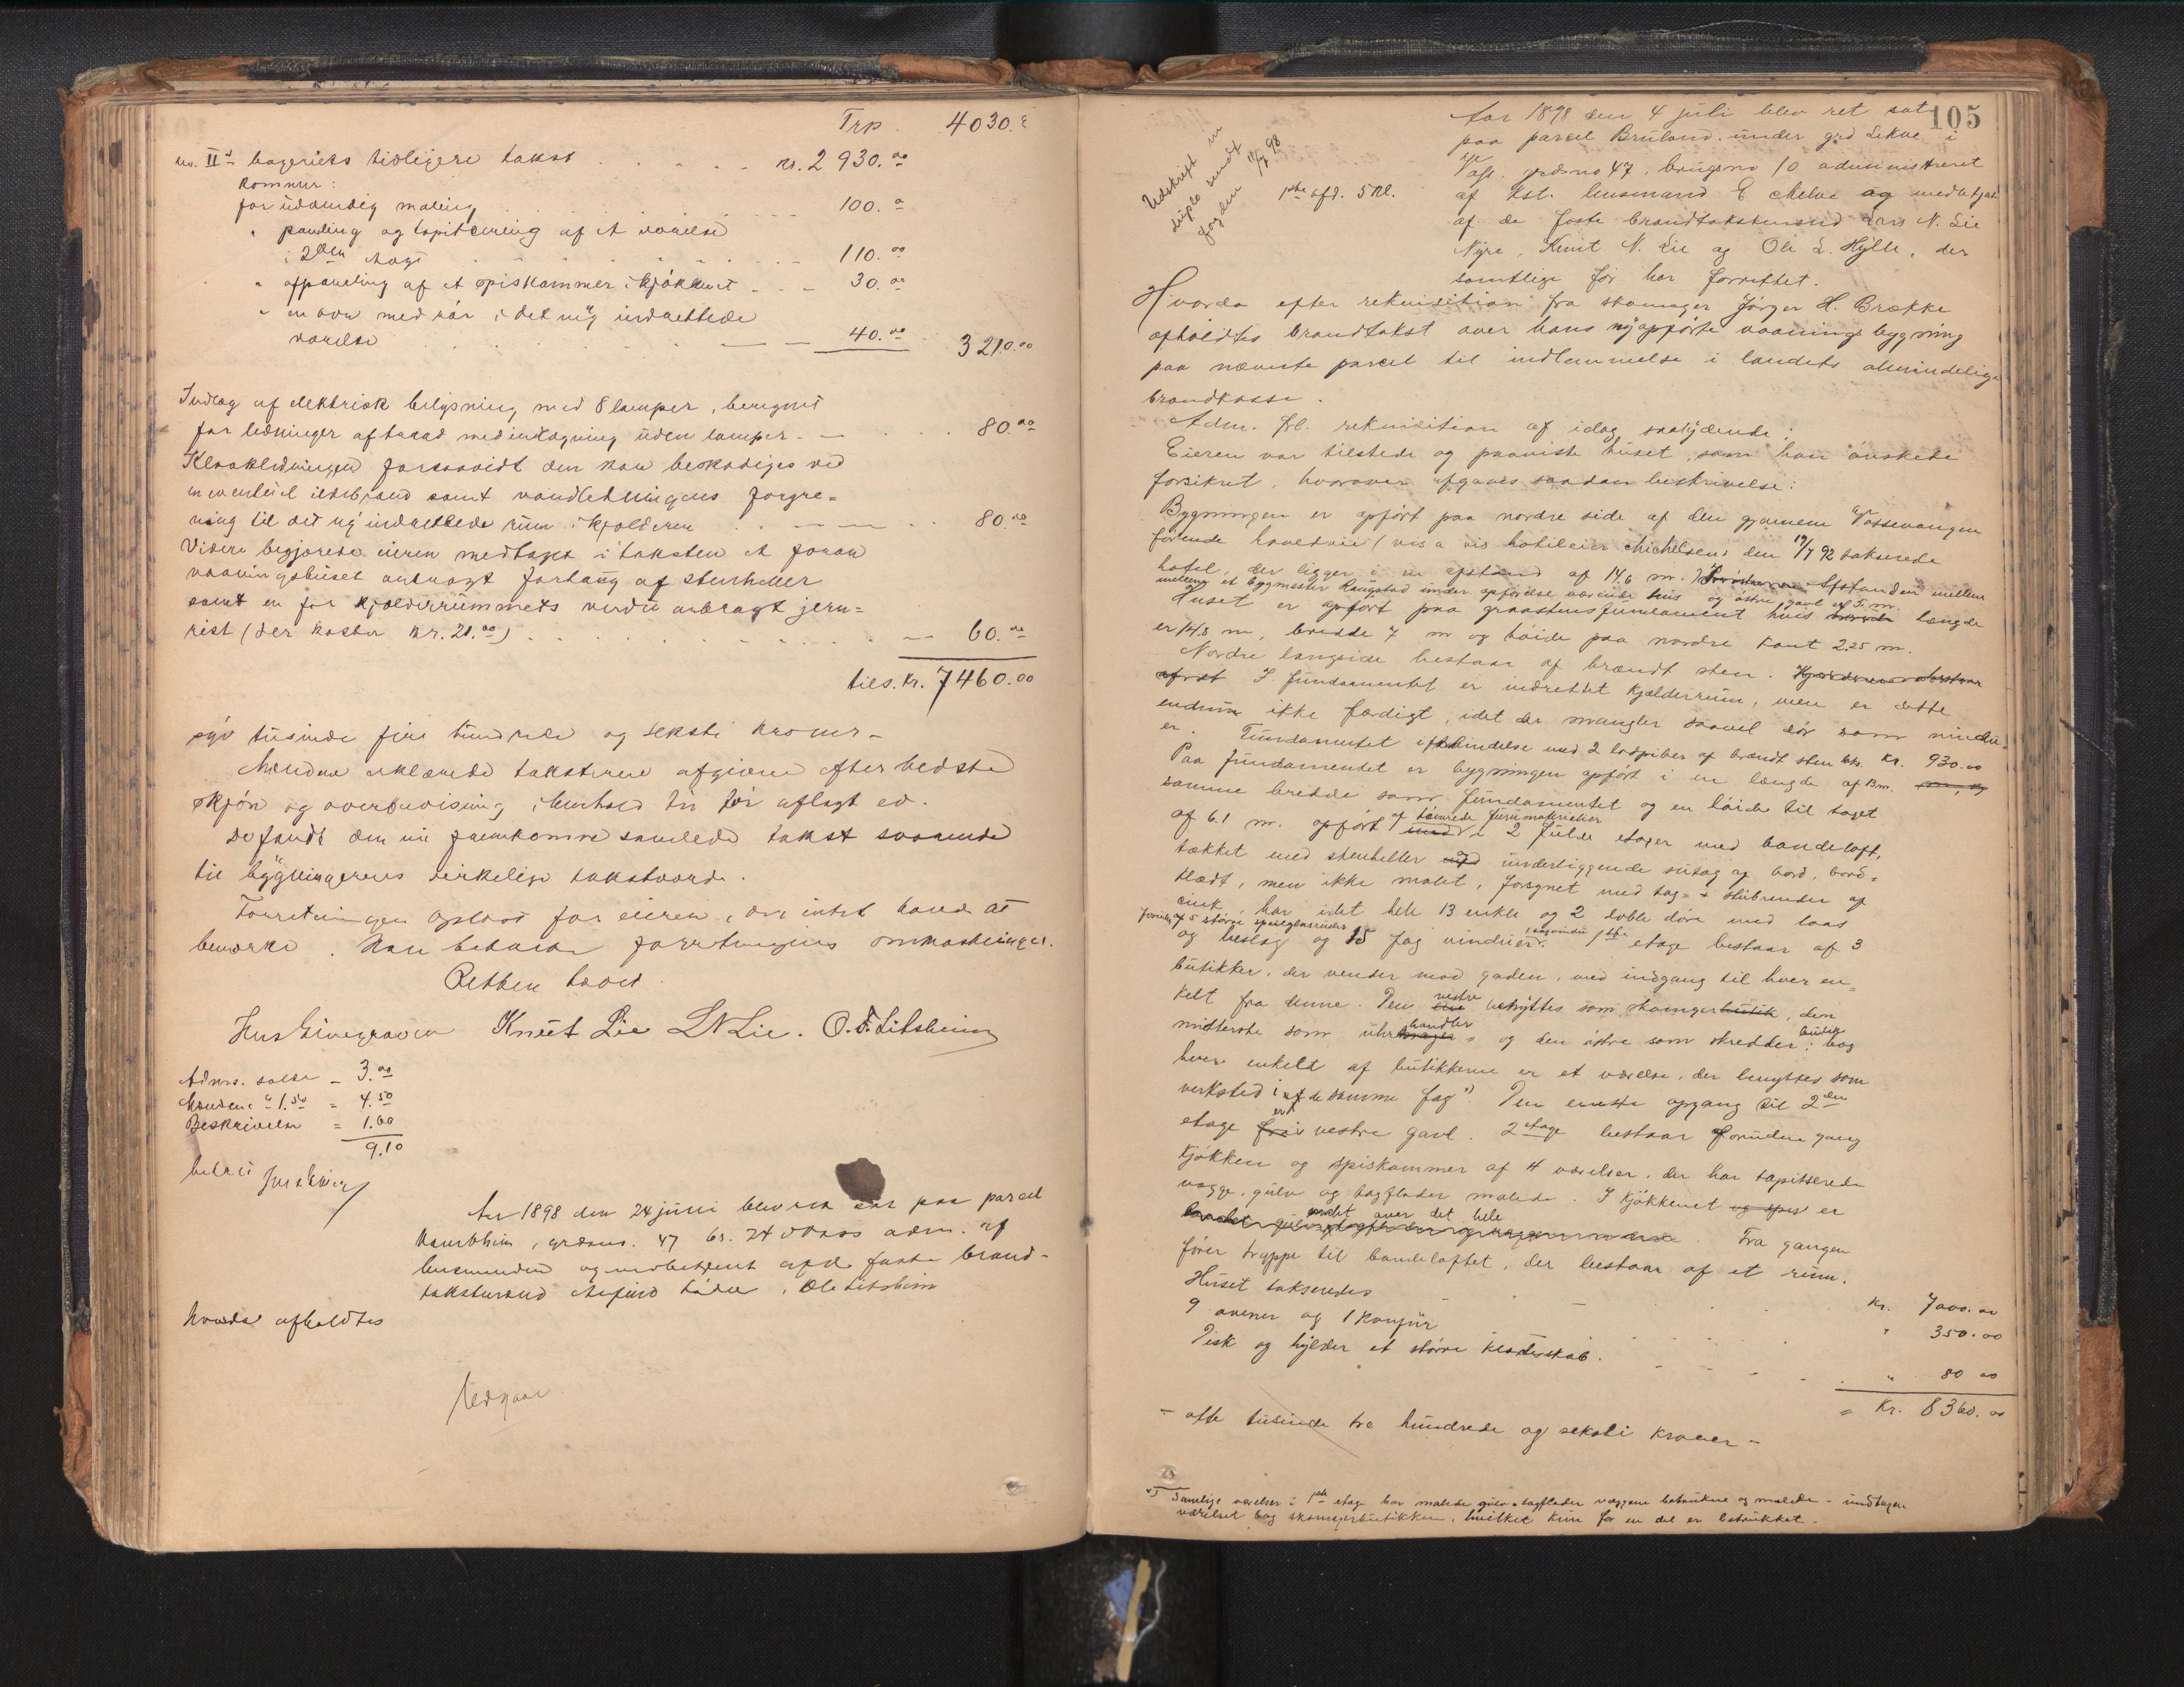 Trp. 4030.
no. II bageriets tidligere takst . . . . . kr. 2 930.00
Kommer:
for udvendig maling . . . . . 100.
" panling og tapitsering af et værelse
i 2den etage . . . . . 110.00
" afpaneling af et spiskammer i kjøkkenet . . 30.00
" en ovn med rør i det ny indrettede
værelse . . . . . 40.00 3210.00
Indlæg af elektrisk belysning med 8 lamper, beregnet
for ledninger med indlægning uden lamper . . . 80.00
Kloakledningen forsaavidt den kan beskadiges ved
en eventuel ildebrand samt vandledningens forgre=
ning til det ny indrettede rum i kjelderen . . . 80.00
Videre begjærede eieren medtaget i taksten et foran
vaaningshuset anbragt fortaug af stenheller
samt en for kjælderrummets vindu anbragt jern=
rist (der koster kr. 20.00) . . . . . 60.00
tils. kr. 7460.00
syv tusinde fire hundrede og seksti kroner –
Mændene erklærede taksterne afgivne efter bedste
skjøn og overbevisning i henhold til før aflagt ed.
De fandt den nu fremkomne samlede takst svarende
til bygningernes virkelige takstværdi.
Forretningen oplæst for eieren, der intet havde at
bemærke. Han betaler forretningens omkostninger.
Retten hævet.
Knut Lie LNLie. O. F. Litsheim
Adms. salær – 3.00
Mændene " 1.50 = 4.50
Beskrivelse = 1.60
9.10
betalt
Aar 1898 den 24 juni blev ret sat paa parcel
grdsno. 47 br. 24 Voss adm. af
lensmanden og medbetjent af de faste brand-
takstmænd , Ole Litsheim
Hvorda afholdtes
Udgaar
105
Udskrift in
duplo sendt
fogden 11/7 98
1ste afd. 5 Kl.
Aar 1898 den 4 juli blev ret sat
paa parcel Bruland under grd Lekve i
Vossevangen, grdsno 47, brugsno 10 administreret
af kst. lensmand E Melve og medbetjent
af de faste brandtakstmænd Lars N. Lie
Nyre, Knut N. Lie og Ole L. Hylle, der
samtlige før har forrettet.
Hvorda efter rekvisition fra skomager Jørgen H. Brække
afholdtes brandtakst over hans nyopførte vaaningsbygning
paa nævnte parcel til indlemmelse i landets almindelige
brandkasse.
Adm. frl. rekvisition af idag saalydende:
Eieren var tilstede og paaviste huset, som han ønskede
forsikret, hvorover afgaves saadan beskrivelse:
Bygningen er opført paa nordre side af den gjennem Vossevangen
førende hovedvei (vis a vis hotileier Michelsens den 19/7 92 takserede
hotel, der ligger i en afstand af 14.6 m. Afstanden mellem
mellem et bygmester Rangstad under opførelse værende hus og østre gavl er 5 m.
Huset er opført paa graastensfundament hvis længde
er 14.8 m, bredde 7 m og høide paa nordre kant 2.25 m.
Nordre langside bestaar af brændt sten.
I fundamentet er indrettet kjælderrum, men er dette
endnu ikke færdigt, idet der mangler saavel dør som vindu-
er. Fundamentet i forbindelse med 2 ledpiber af brændt sten taks. Kr. 930.00
Paa fundamentet er bygningen opført i en længde af 13 m.
samme bredde som fundamentet og en høide til taget
af 6.1 m. opført af tømrede furumaterialier i 2 fulde etager med bandeloft,
tækket med stenheller og underliggende sutag af bord, bord=
klædt, men ikke malet, forsynet med tag- & stubrender af
zink, har idet hele 13 enkle og 2 doble døre med laas
foruden 5 større speilglasruder
og beslag og 15 fag vinduer. 1ste etage bestaar af 3
butikker, der vender mod gaden, med indgang til hver en=
kelt fra denne. Den vestre benyttes som skomagerbutik, den
midterste som uhrhandler og den østre som skredder: bag
hver enkelt af butikkerne er et værelse, der benyttes som
verksted i de samme fag x) Den eneste opgang til 2den
etage er i vestre gavl. 2 etage bestaar foruden gang
Kjøkken og spiskammer af 4 værelser, der har tapitserede
vægge, gulv og tagflader malede. I Kjøkkenet og spis er
malet over det hele. Fra gangen
fører trappe til bandeloftet, der bestaar af et rum.
Huset takseredes . . . Kr. 7000.00
9 ovner og 1 Komfür . . . " 350.00
Disk og hylder et større klædeskab . . . " 80 00
= Kr. 8360.00
– otte tusinde tre hundrede og seksti kroner –
x) Samtlige værelser i 1ste etage har malede gulv & tagflader væggene betrukne og malede – undtagen
værelset bag skomagerbutikken, hvilket kun for en del er betrukket.